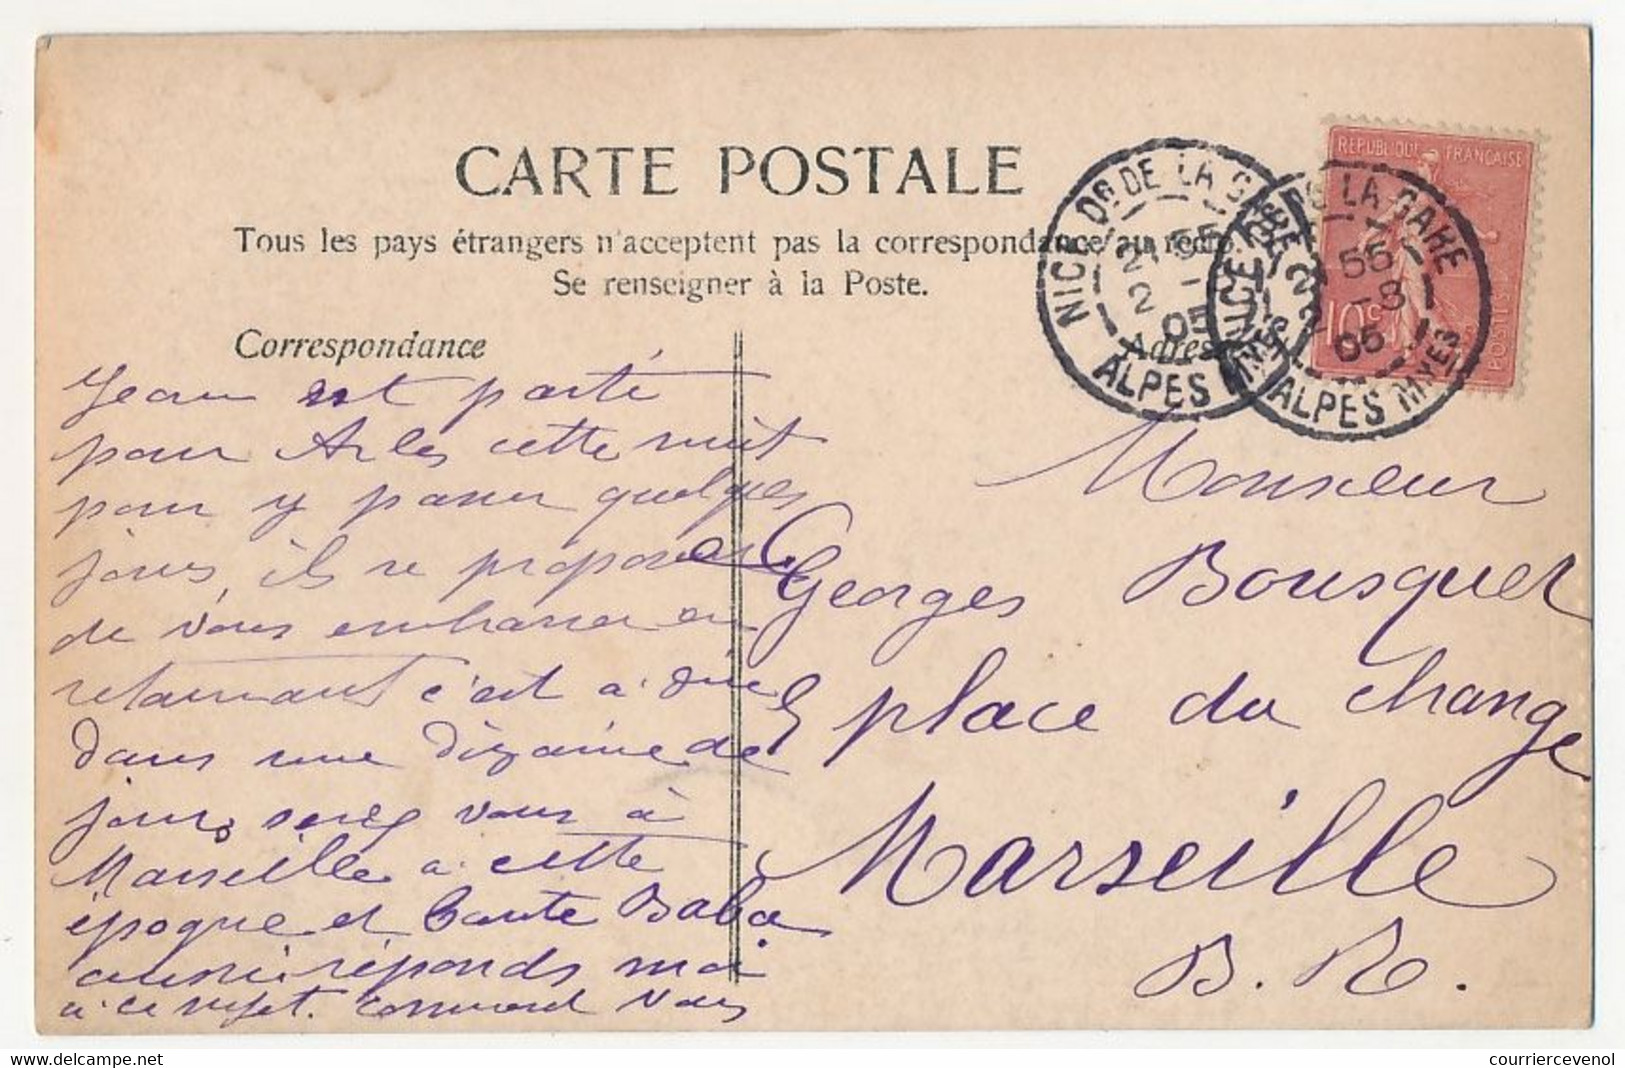 CARTE POSTALE
Tous les pays étrangers n'acceptent pas la correspondance au recto.
Se renseigner à la Poste.
Correspondance
Adresse
REPUBLIQUE FRANÇAISE
10c
POSTES
NICE Pl. DE LA GARE
21 55
2 - 8
05
ALPES MMES
NICE Pl. DE LA GARE
2 55
2 - 8
05
ALPES MMES
Jean est parti
pour Arles cette nuit
pour y passer quelques
jours, ils se propose
de vous embrasser en
retournant c'est à dire
dans une dizaine de
jours serez vous à
Marseille à cette
époque et tante Baba
aussi réponds moi
à ce sujet. comment vous
Monsieur
Georges Bousquet
place du change
Marseille
B. R.
courriercevenol